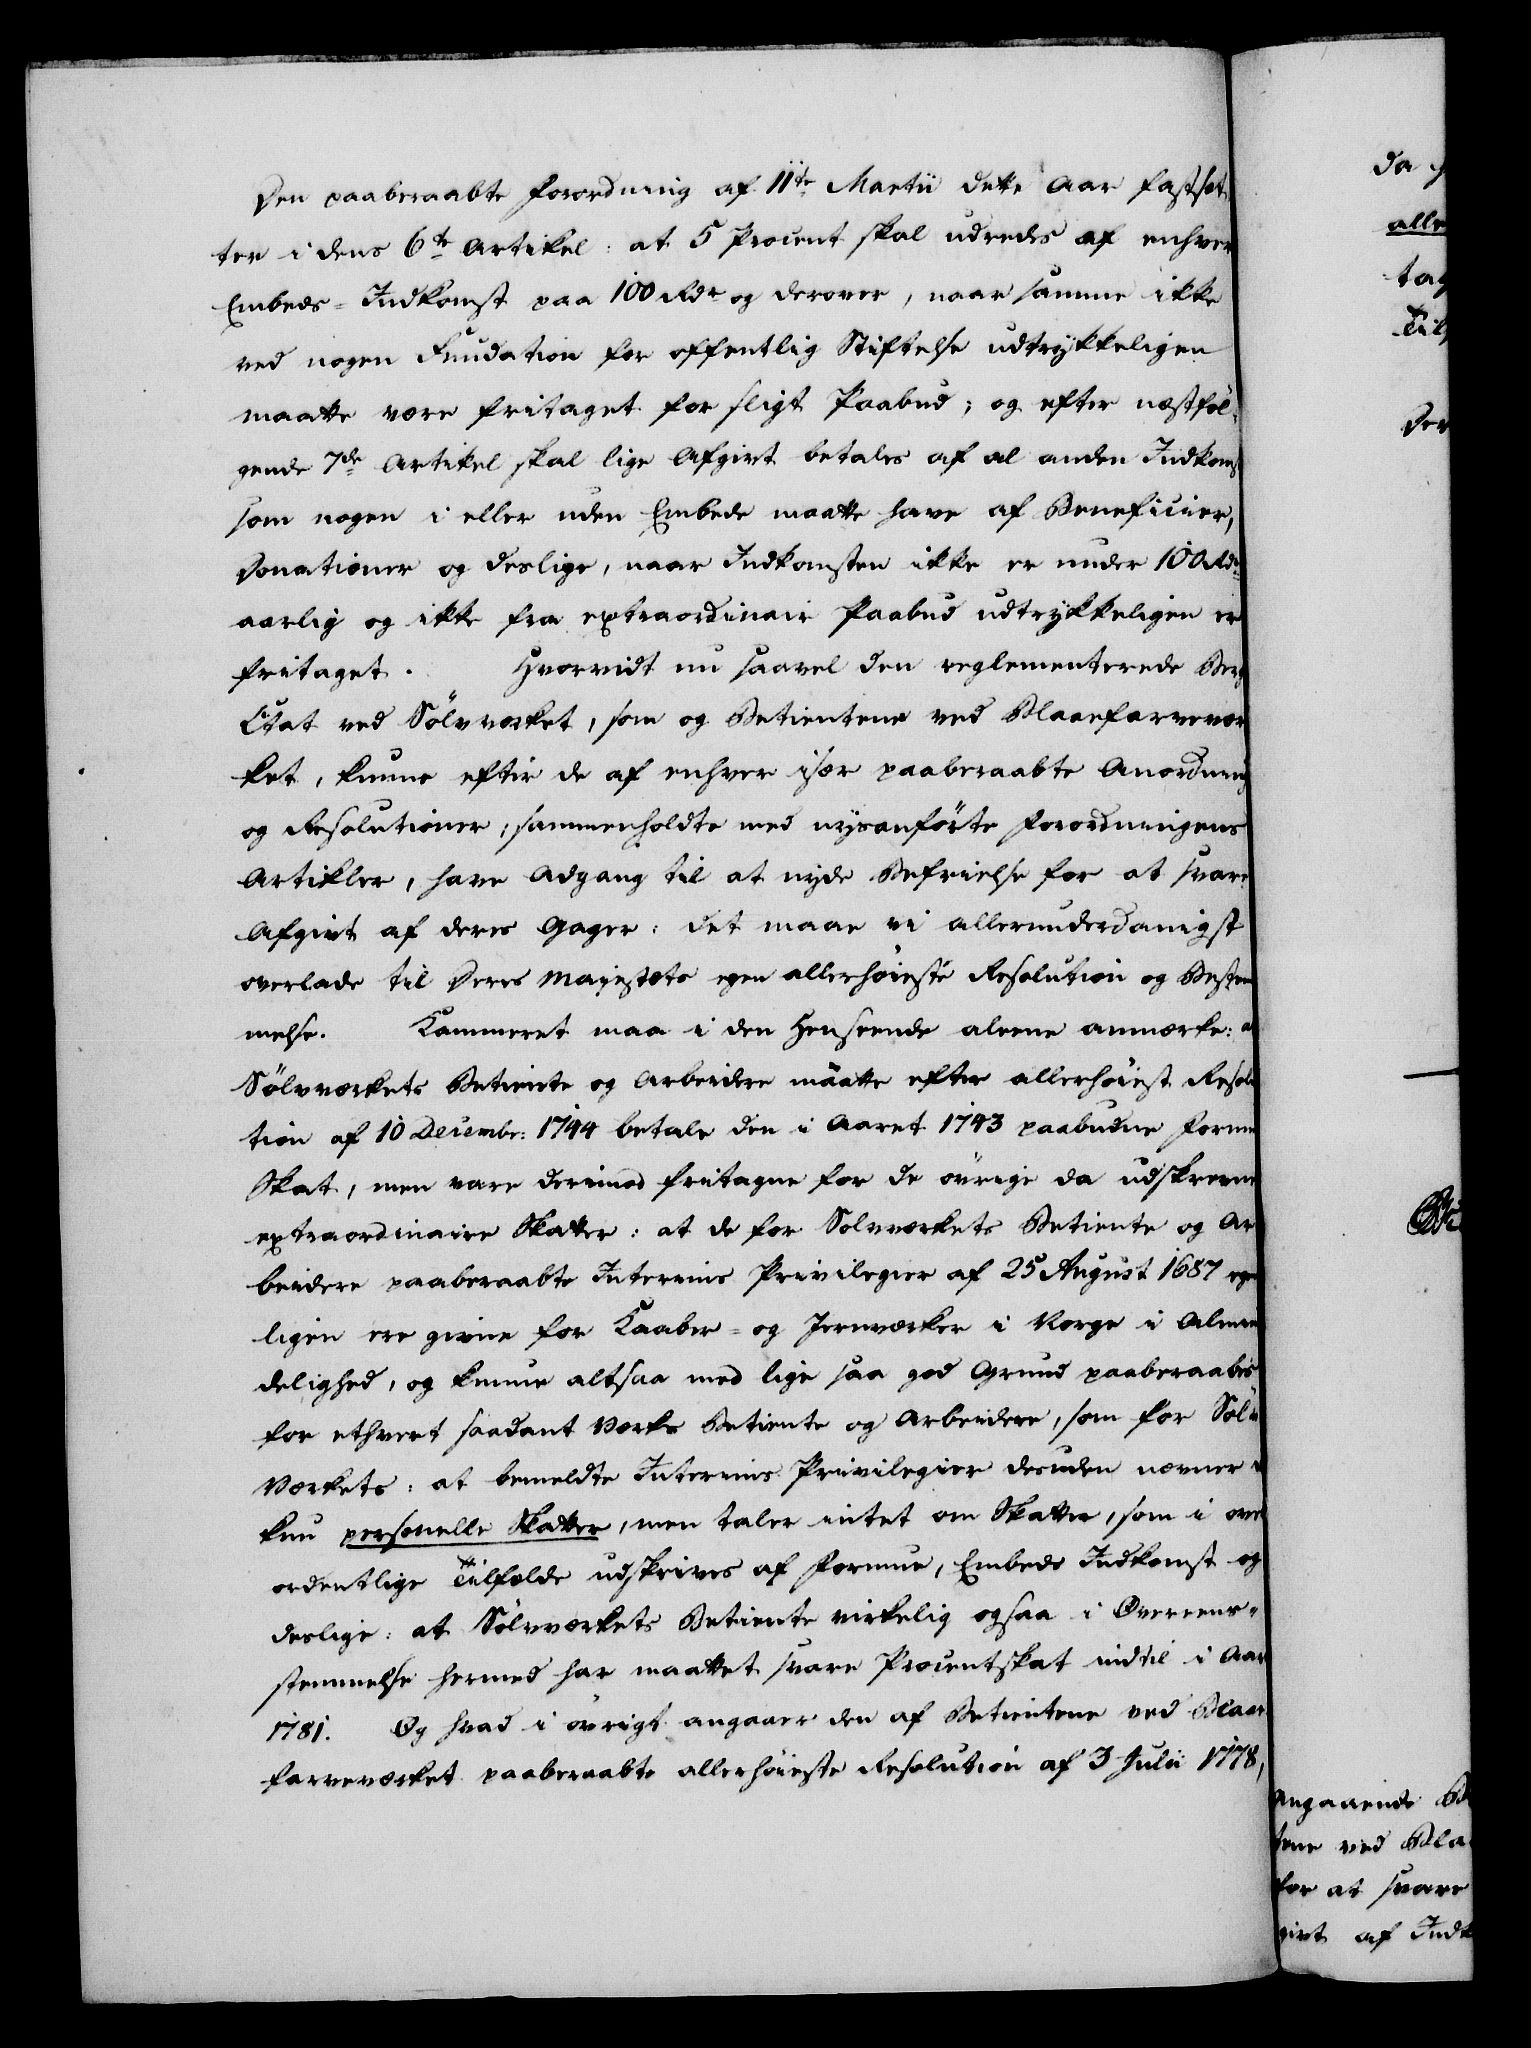 Den paaberaabte Forordning af 11te Martii dette Aar fastsæt
ter i dens 6te Artikel: at 5 Procent skal udredes af enhver
Embeds-Indkomst paa 100 Rdr og derover, naar samme ikke
ved nogen Fundation for offentlig Stiftelse udtrykkeligen
maatte være fritaget for sligt Paabud; og efter næstføl-
gende 7de Artikel skal lige Afgivt betales af al anden Indkomst
som nogen i eller uden Embede maatte have af Beneficier,
Donationer og deslige, naar Indkomsten ikke er under 100 Rdr
aarlig og ikke fra extraordinair Paabud udtrykkeligen er
fritaget. Hvorvidt nu saavel den reglementerede Berg
Etat ved Sølvværket, som og Betientene ved Blaaefarvevær
ket, kunne efter de af enhver især paaberaabte Anordning
og Resolutioner, sammenholdte med nysanførte Forordningens
Artikler, have Adgang til at nyde Befrielse for at svare
Afgivt af deres Gager: det maae vi allerunderdanigst
overlade til Deres Majestæts egen allerhøieste Resolution og Bestem
melse. Kammeret maa i den Henseende aleene anmærke: at
Sølvværkets Betiente og Arbeidere maatte efter allerhøiest Resolu
tion af 10 Decembr: 1744 betale den i Aaret 1743 paabudne Formue
Skat, men vare derimod fritagne for de øvrige da udskrevne
extraordinaire Skatter: at de for Sølvværkets Betiente og Ar
beidere paaberaabte Interims Privilegier af 25 August 1687 egent
ligen ere givne for Kaaber- og Jernværker i Norge i Almin
delighed, og kunne altsaa med lige saa god Grund paaberaabes
for ethvert saadant Værks Betiente og Arbeidere, som for Sølv
Værkets: at bemeldte Interims Privilegier desuden nævner
kun personelle Skatter, men taler intet om Skatter, som i over
ordentlige Tilfælde udskrives af Formue, Embeds Indkomst og
deslige: at Sølvværkets Betiente virkelig ogsaa i Overeens-
stemmelse hermed har maattet svare Procentskat indtil i Aar
1781. Og hvad i øvrigt angaaer den af Betientene ved Blaae
farveværket paaberaabte allerhøieste Resolution af 3 Julii 1778,
da
alle
tag
Til
Der
angaaende
tene ved Bla
for at svare
givt af Indk